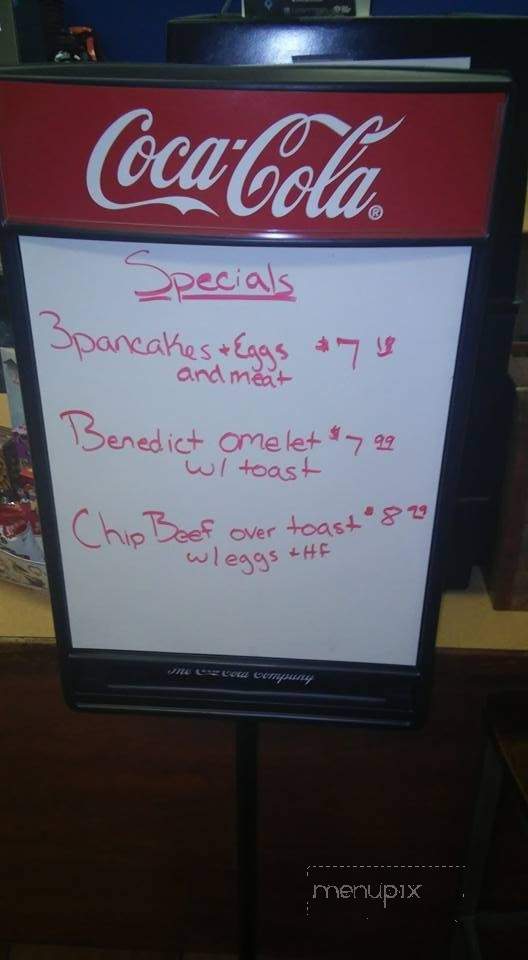 Coca-Cola®
Specials
3 pancakes + Eggs $7
and meat
Benedict omelet $7 99
w/ toast
Chip Beef over toast $8
w/ eggs + HF
The Coca-Cola Company
menupix